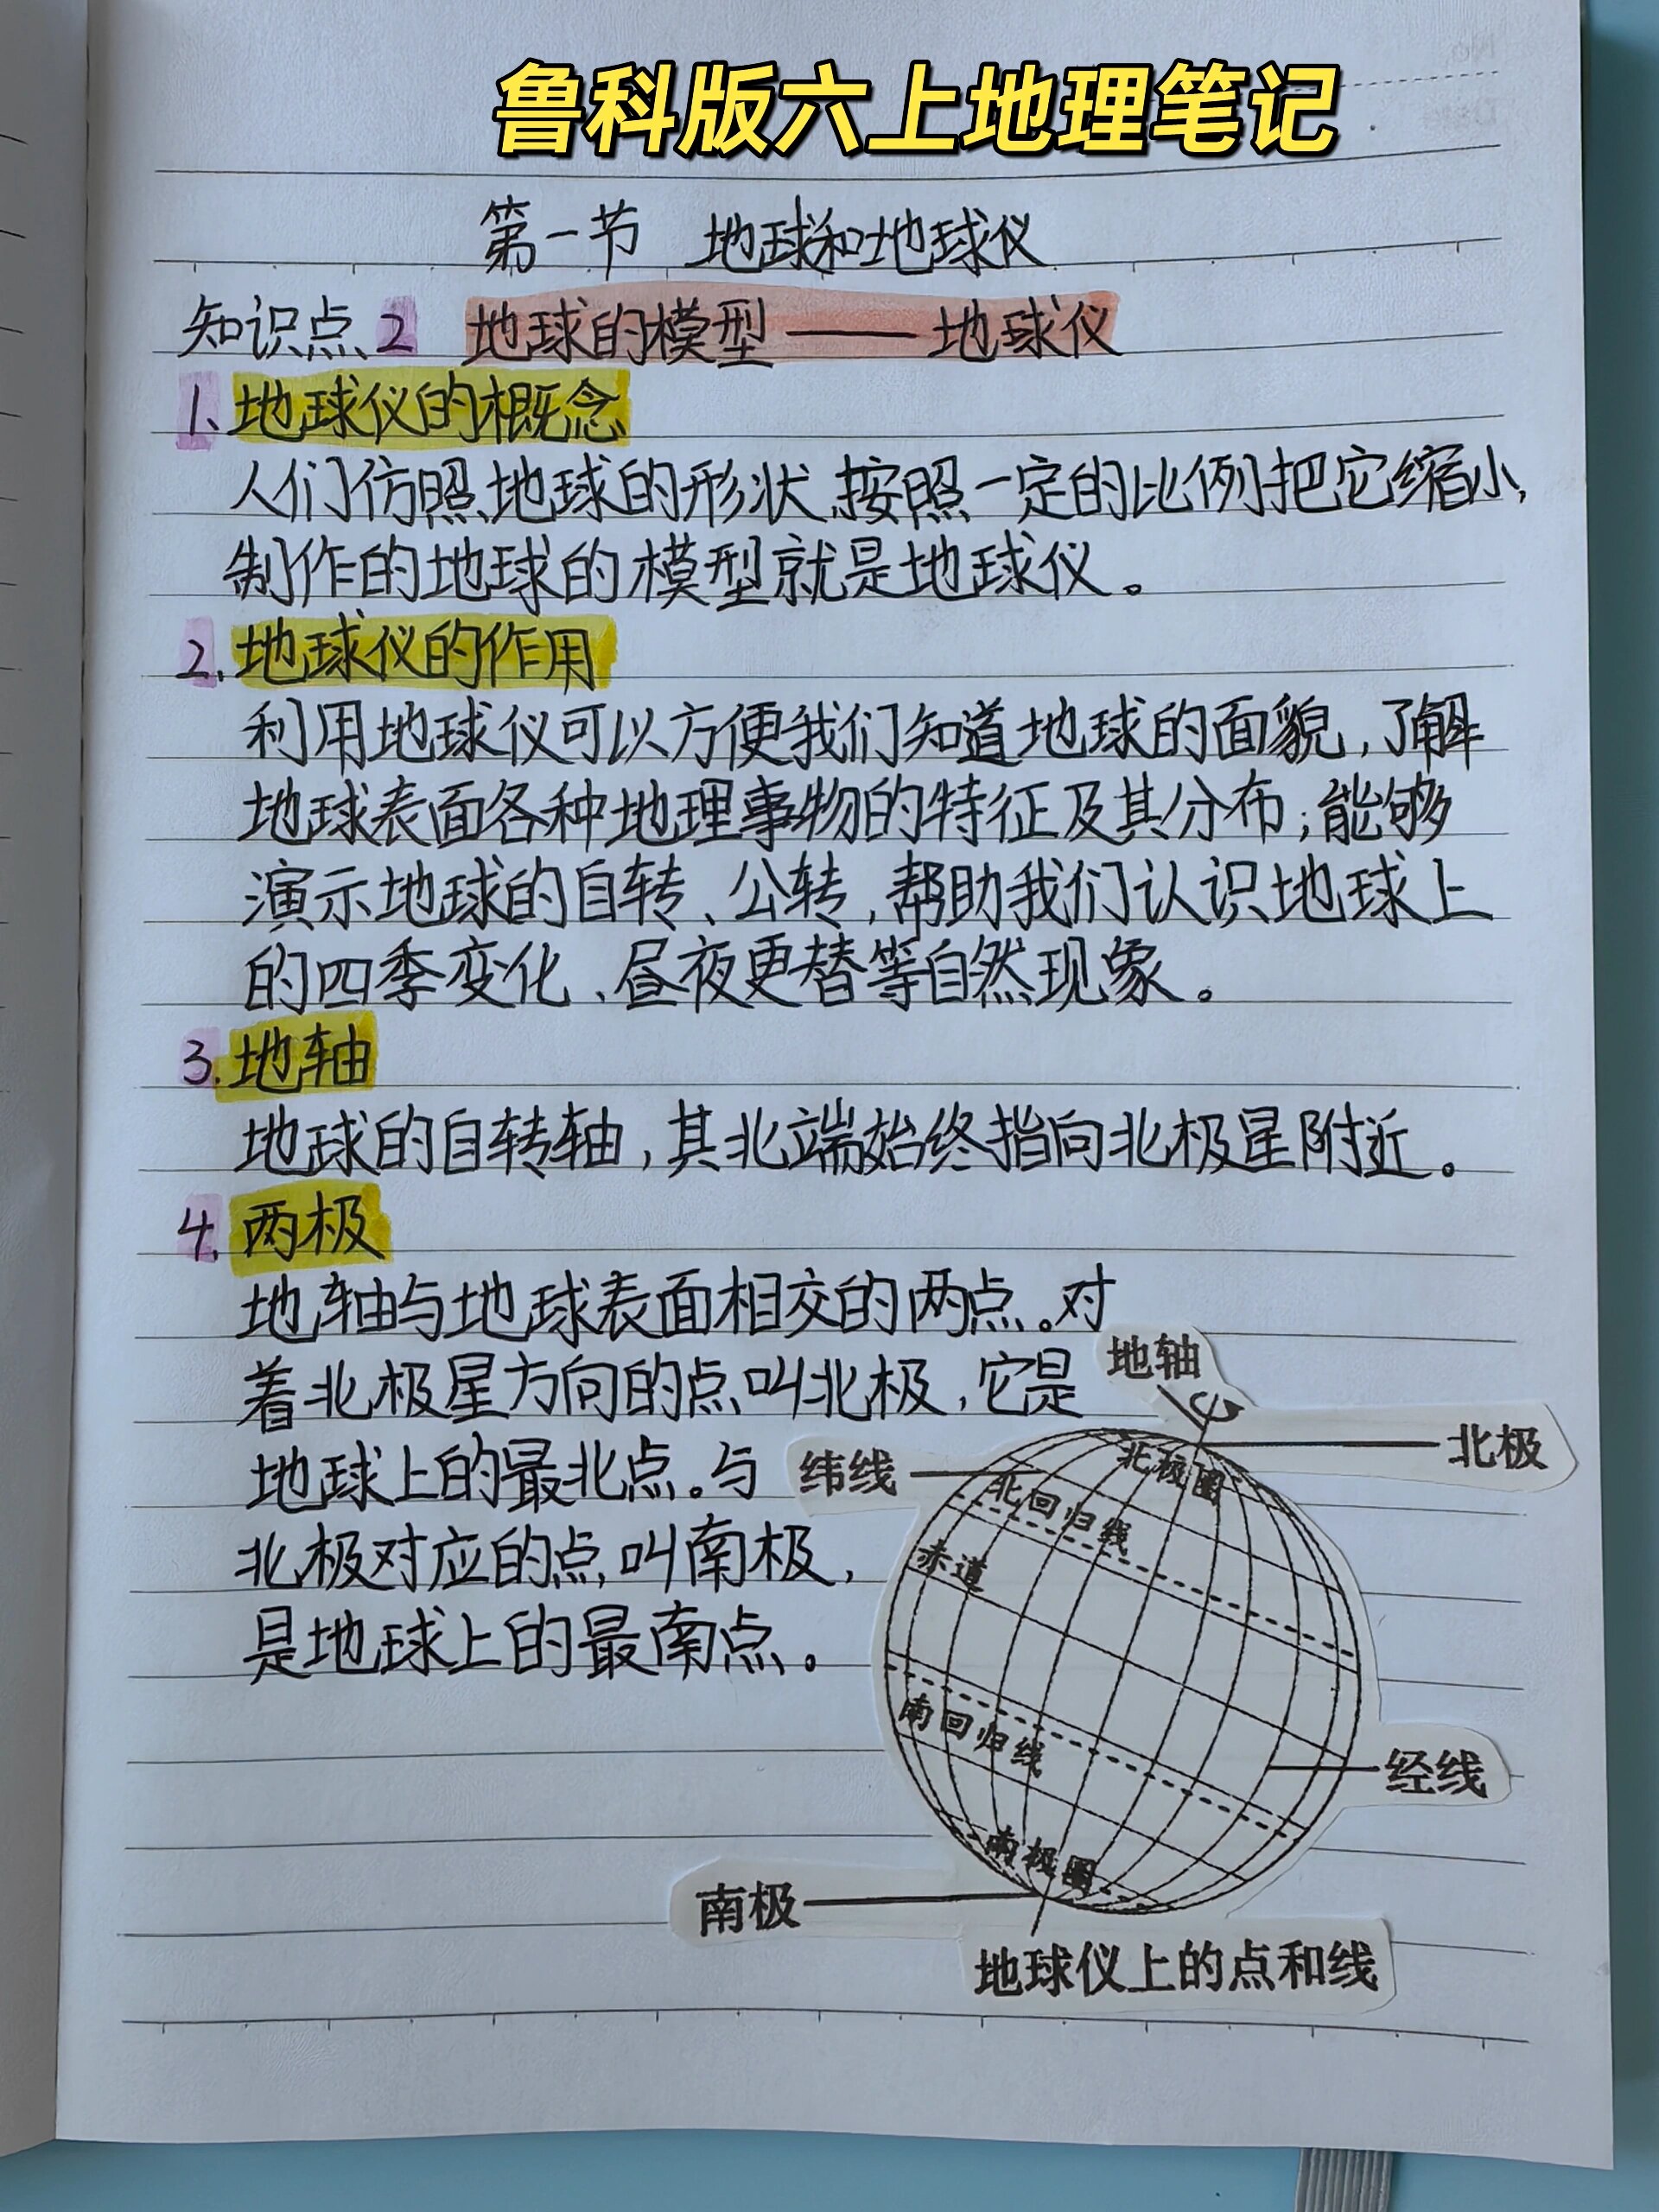 鲁科版六上地理笔记
第一节 地球和地球仪
知识点2 地球的模型——地球仪
1、地球仪的概念
人们仿照地球的形状,按照一定的比例把它缩小,
制作的地球的模型就是地球仪。
2.地球仪的作用
利用地球仪可以方便我们知道地球的面貌,了解
地球表面各种地理事物的特征及其分布;能够
演示地球的自转、公转,帮助我们认识地球上
的四季变化、昼夜更替等自然现象。
3.地轴
地球的自转轴,其北端始终指向北极星附近。
4.两极
地轴与地球表面相交的两点。对
着北极星方向的点叫北极,它是
地球上的最北点。与
北极对应的点叫南极,
是地球上的最南点。
地轴
北极
纬线
北极圈
北回归线
赤道
南回归线
经线
南极圈
南极
地球仪上的点和线